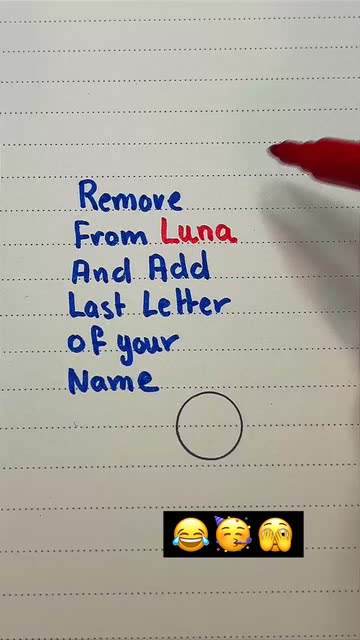 Remove
From Luna
And Add
Last Letter
of your
Name